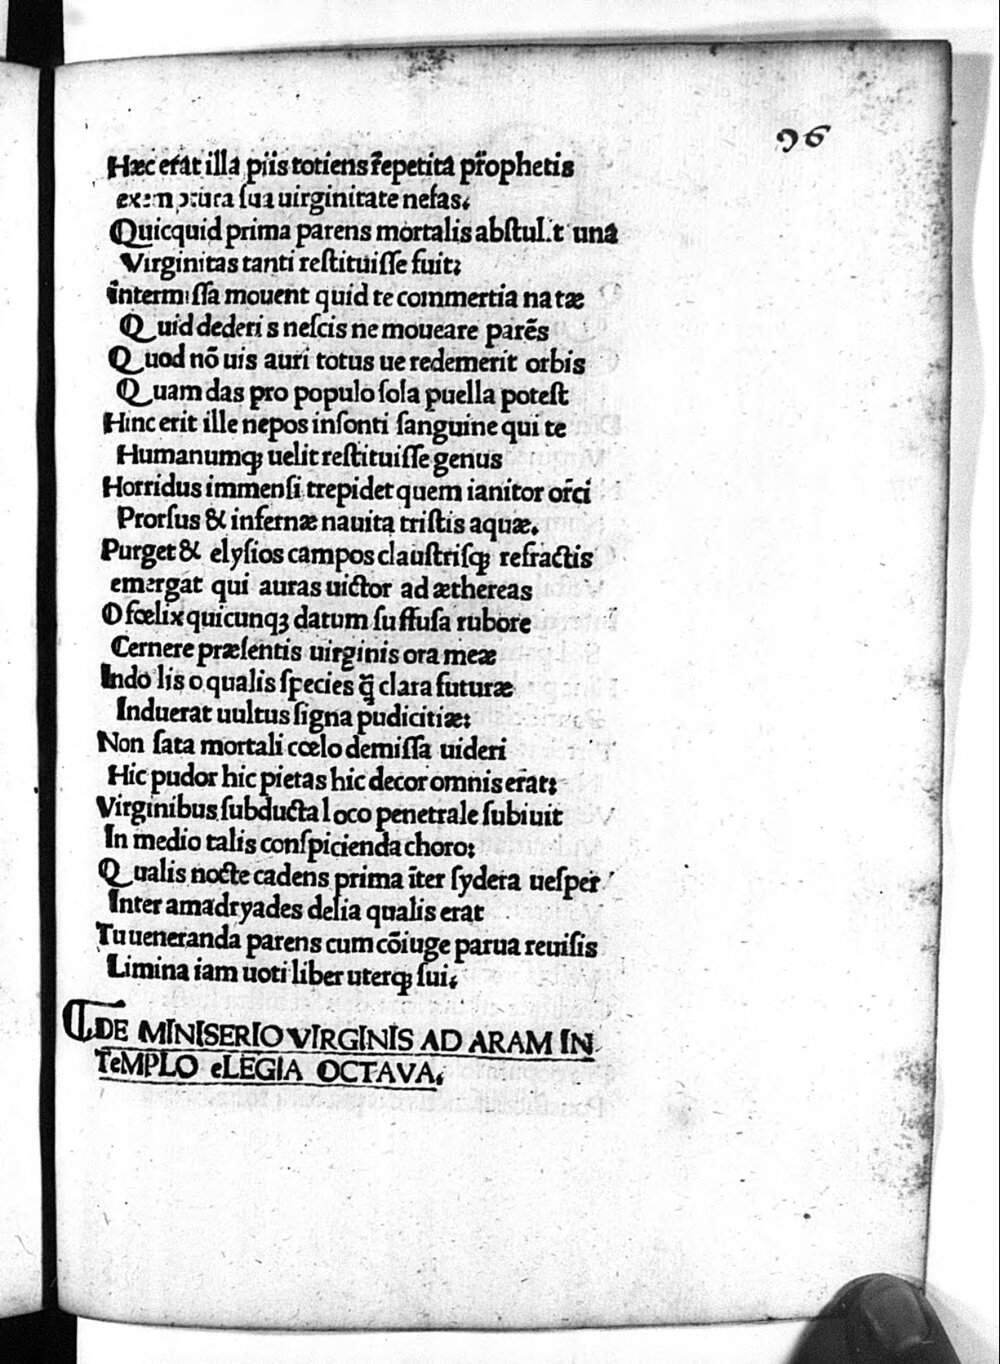 96
Hæc erat illa piis totiens repetita prophetis
exemptura sua uirginitate nefas.
Quicquid prima parens mortalis abſtulit una
Virginitas tanti reſtituiſſe fuit:
intermiſſa mouent quid te commertia natæ
Quid dederis neſcis ne moueare parẽs
Quod nõ uis auri totus ue redemerit orbis
Quam das pro populo ſola puella poteſt
Hinc erit ille nepos inſonti ſanguine qui te
Humanumq; uelit reſtituiſſe genus
Horridus immenſi trepidet quem ianitor orci
Prorſus & infernæ nauita triſtis aquæ.
Purget & elyſios campos clauſtriſq; refractis
emergat qui auras uictor ad æthereas
O fœlix quicunqꝫ datum ſuffuſa rubore
Cernere præſentis uirginis ora meæ
Indo lis o qualis ſpecies q̃ clara futuræ
Induerat uultus ſigna pudicitiæ:
Non ſata mortali cœlo demiſſa uideri
Hic pudor hic pietas hic decor omnis erat:
Virginibus ſubducta loco penetrale ſubiuit
In medio talis conſpicienda choro:
Qualis nocte cadens prima ĩter ſydera ueſper
Inter amadryades delia qualis erat
Tu ueneranda parens cum cõiuge parua reuiſis
Limina iam uoti liber uterq; ſui.
DE MINISERIO VIRGINIS AD ARAM IN
TeMPLO eLEGIA OCTAVA.